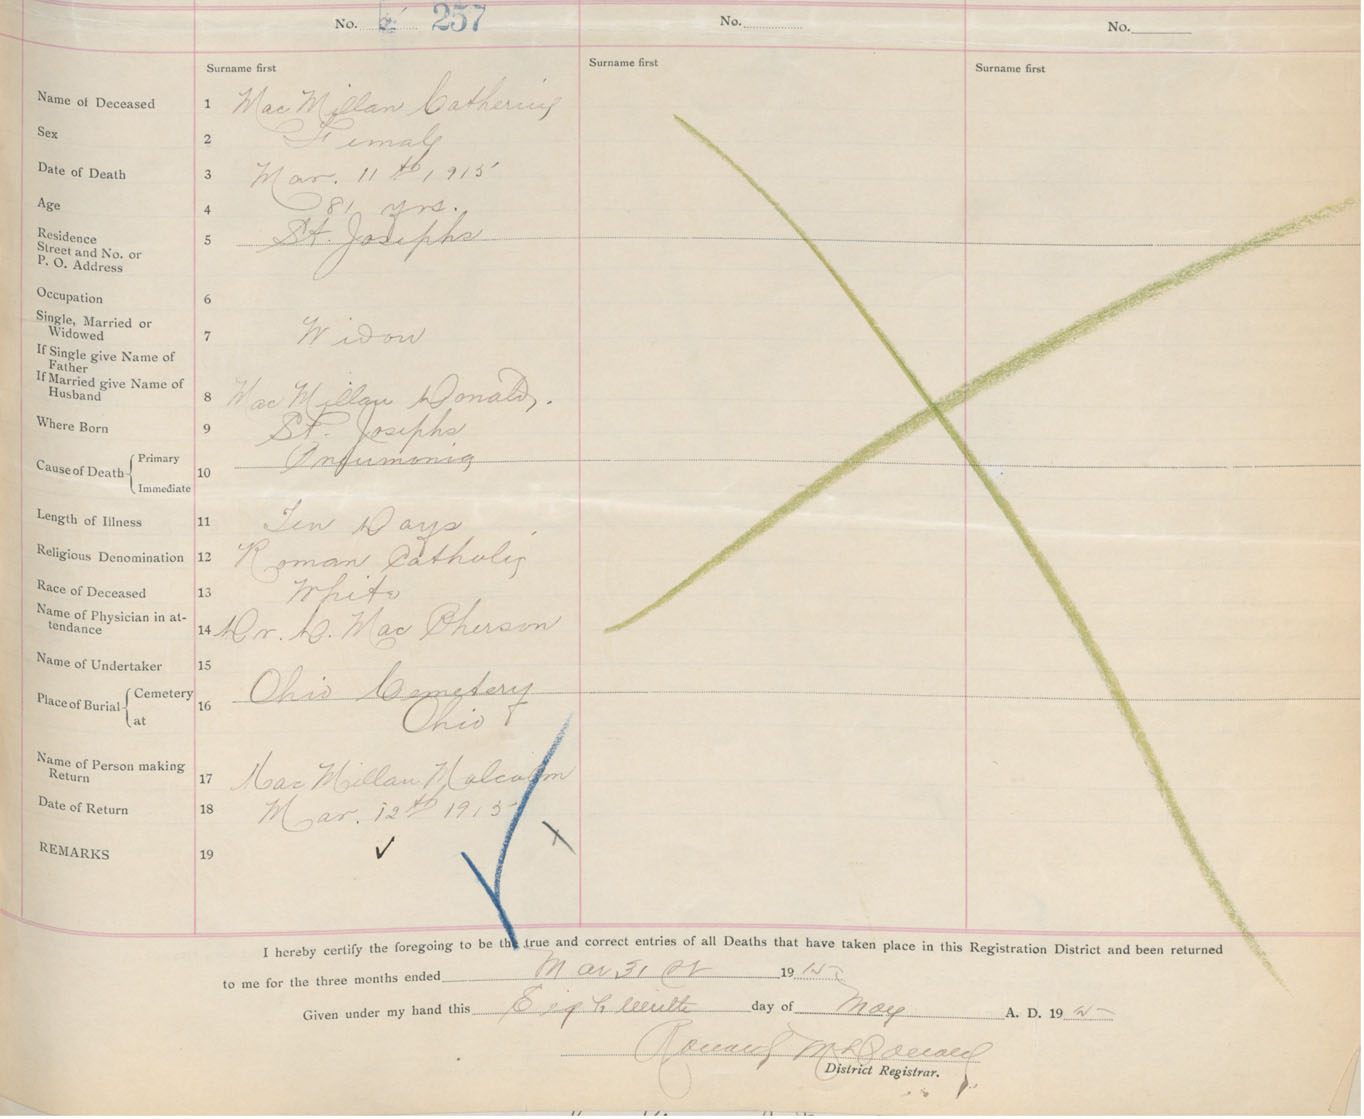 No. 257
No.
No.
Surname first
Surname first
Surname first
Name of Deceased 1 MacMillan Catherine
Sex 2 Female
Date of Death 3 Mar. 11th, 1915
Age 4 81 yrs.
Residence
Street and No. or
P. O. Address 5 St. Josephs
Occupation 6
Single, Married or
Widowed 7 Widow
If Single give Name of
Father
If Married give Name of
Husband 8 MacMillan Donald.
Where Born 9 St. Josephs
Cause of Death Primary Immediate 10 Pneumonia
Length of Illness 11 Ten Days
Religious Denomination 12 Roman Catholic
Race of Deceased 13 White
Name of Physician in at-
tendance 14 Dr. D. MacPherson
Name of Undertaker 15
Place of Burial Cemetery at 16 Ohio Cemetery
Ohio
Name of Person making
Return 17 MacMillan Malcolm
Date of Return 18 Mar. 12th 1915
REMARKS 19
I hereby certify the foregoing to be the true and correct entries of all Deaths that have taken place in this Registration District and been returned
to me for the three months ended Mar 31st 1915
Given under my hand this day of May A. D. 19 15
Ronald McDonald
District Registrar.